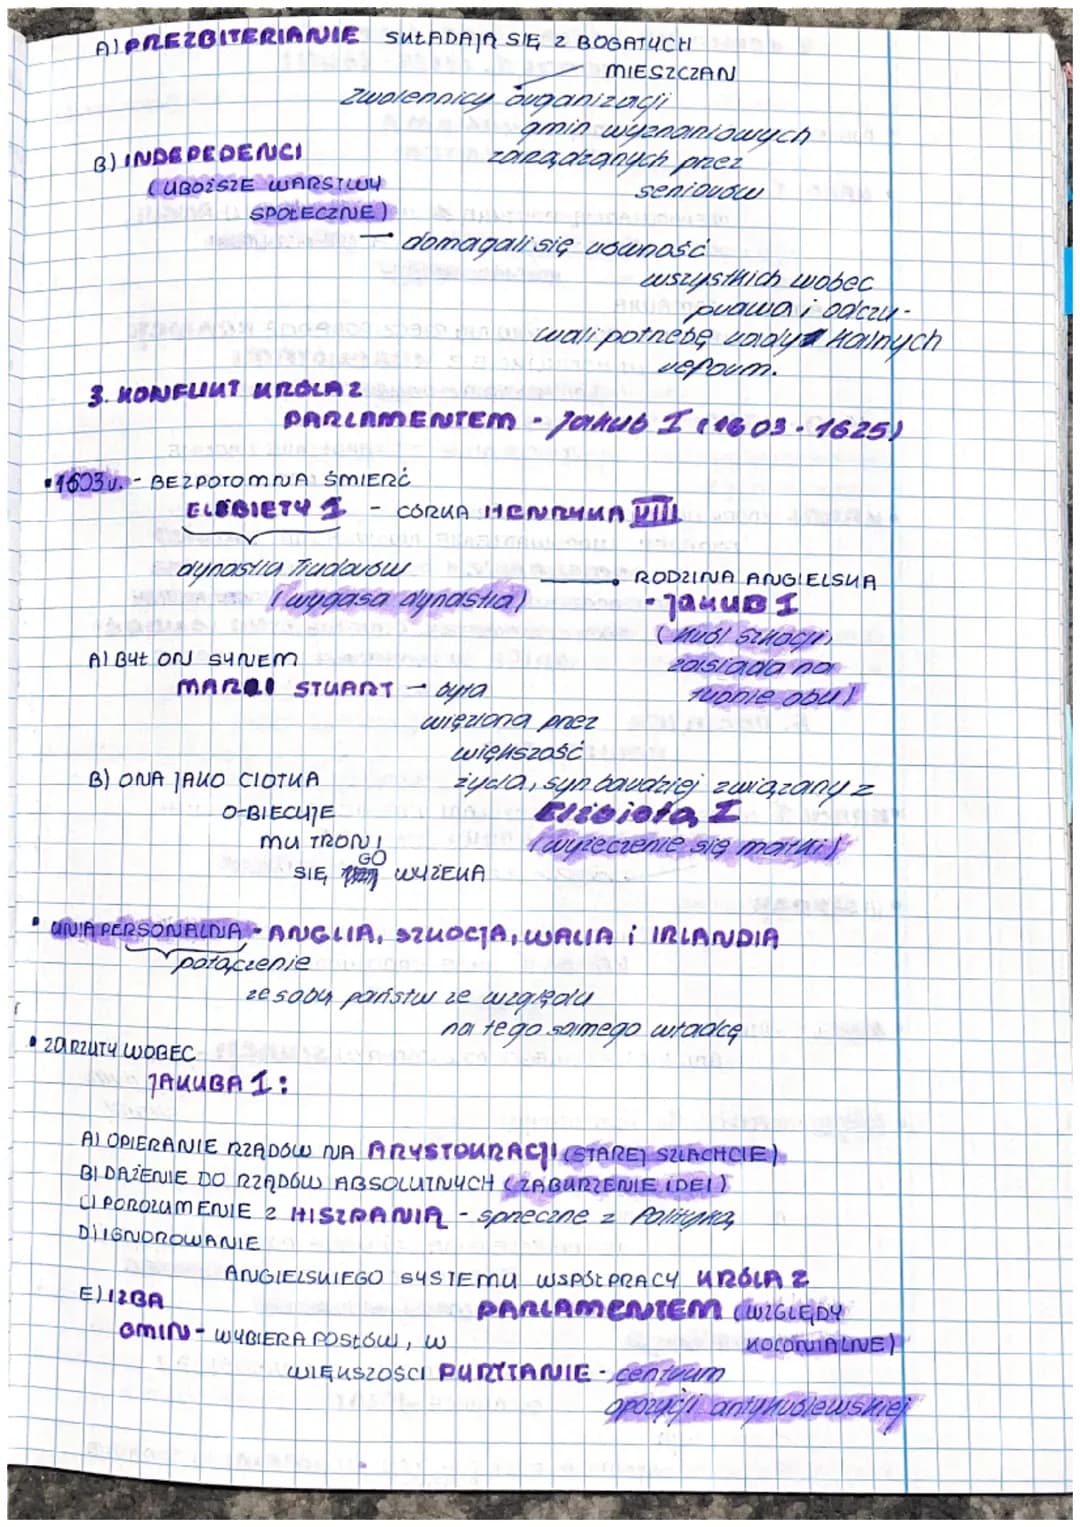 A) PREZBITERIANIE SKŁADAJĄ SIĘ Z BOGATYCH
MIESZCZAN
zwolennicy organizacji
gmin wyznaniowych
zarządzanych przez
seniorów
B) INDEPEDENCI
(UBOŻSZE WARSTWY
SPOŁECZNE)
domagali się równość
wszystkich wobec
prawa i odczu-
wali potrzebę radykalnych
reform.
3. KONFLIKT KRÓLA Z
PARLAMENTEM - Jakub I (1603 - 1625)
• 1603 r. - BEZPOTOMNA ŚMIERĆ
ELŻBIETY I - CÓRKA HENRYKA VIII
dynastia Tiudorów
(wygasa dynastia)
RODZINA ANGIELSKA
- JAKUB I
(król Szkocji,
zaisiada na
tronie obu)
A) BYŁ ON SYNEM
MARII STUART - była
więziona przez
większość
życia, syn bardziej związany z
Elżbietą I
(wyrzeczenie się matki)
B) ONA JAKO CIOTKA
O-BIECUJE
MU TRON I
SIĘ GO WYŻEKA
• UNIA PERSONALNA - ANGLIA, SZKOCJA, WALIA i IRLANDIA
połączenie
ze sobą państw ze względu
na tego samego władcę
• ZARZUTY WOBEC
JAKUBA I:
A) OPIERANIE RZĄDÓW NA ARYSTOKRACJI (STAREJ SZLACHCIE)
B) DĄŻENIE DO RZĄDÓW ABSOLUTNYCH (ZABURZENIE IDEI)
C) POROZUMENIE Z HISZPANIĄ - sprzeczne z Polityką
D) IGNOROWANIE
ANGIELSKIEGO SYSTEMU WSPÓŁPRACY KRÓLA Z
PARLAMENTEM (WZGLĘDY
KOLONIALNE)
E) IZBA
GMIN - WYBIERA POSŁÓW, W
WIĘKSZOŚCI PURYTANIE - centrum
opozycji antykrólewskiej